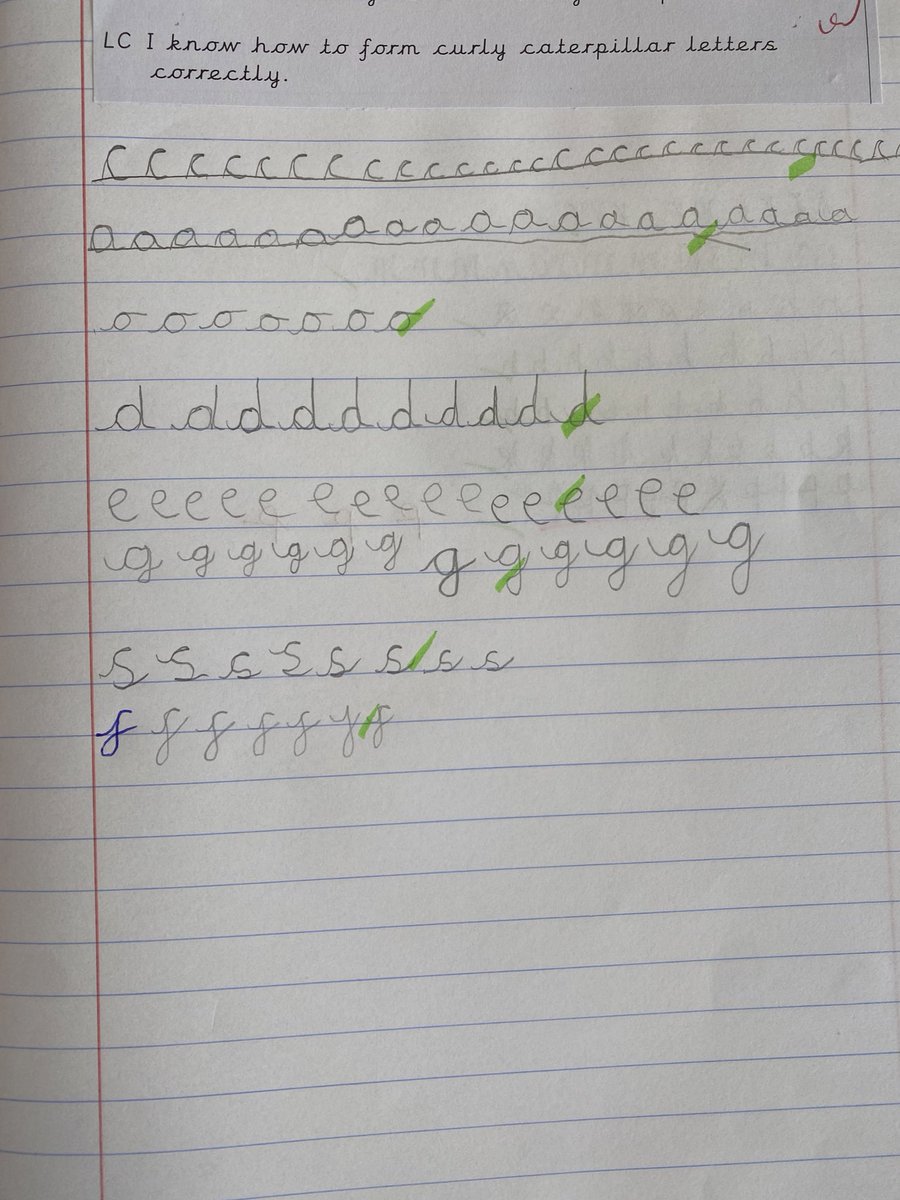 LC I know how to form curly caterpillar letters
correctly.
c c c c c c c c c c c c c c c c c c c c c c c c c c
a a a a a a a a a a a a a a a a a a a
o o o o o o o
d d d d d d d d d d
e e e e e e e e e e e e e e e
g g g g g g g g g g g g
s s s s s s s s
f f f f f f f